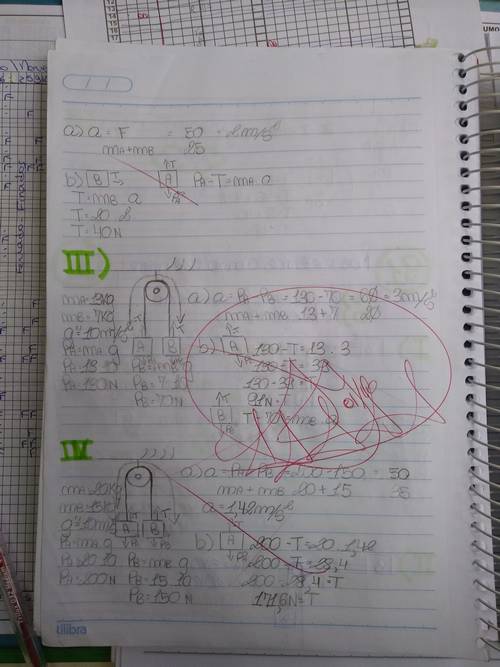 a) a = F = 50 = 2m/s²
mA+mB 25
b) B T A PA-T=mA.a
T=mB.a
T=20.2
T=40N
III)
mA=13Kg a) a=PA-PB=130-70=60=3m/s²
mB=7Kg mA+mB 13+7 20
g=10m/s²
PA=mA.g A B b) A 130-T=13.3
PA=13.10 PB=mB.g 130-T=39
PA=130N PB=7.10 130-39=T
PB=70N 91N=T
B T-70=mB.a
IV
a) a=PA-PB=200-150=50
mA=20Kg mA+mB 20+15 35
mB=15Kg a=1,42m/s²
g=10m/s² A B
PA=mA.g b) A 200-T=20.1,42
PA=20.10 PB=mB.g 200-T=28,4
PA=200N PB=15.10 200-28,4=T
PB=150N 171,6N=T
tilibra